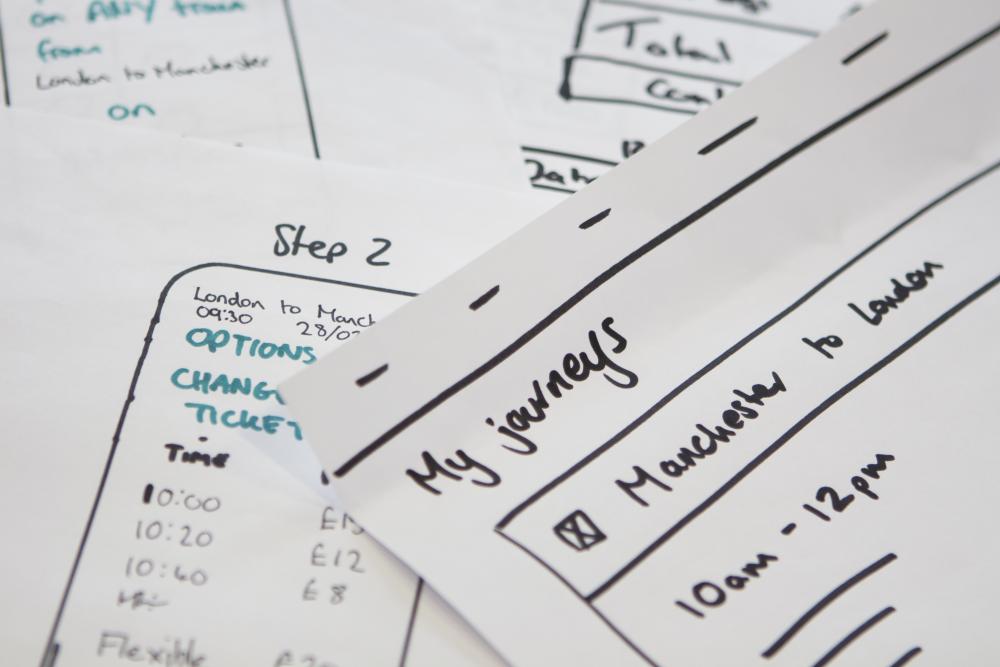 on ANY train
from
London to Manchester
on
Total
Step 2
London to
09:30 28/0
OPTIONS
CHANG
TICKET
Time
10:00
10:20 £12
10:40 £8
Flexible
My journeys
Manchester to London
10am - 12pm